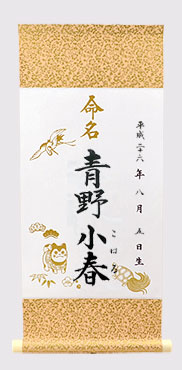 命名
平成二十六年八月五日生
青野小春
こはる